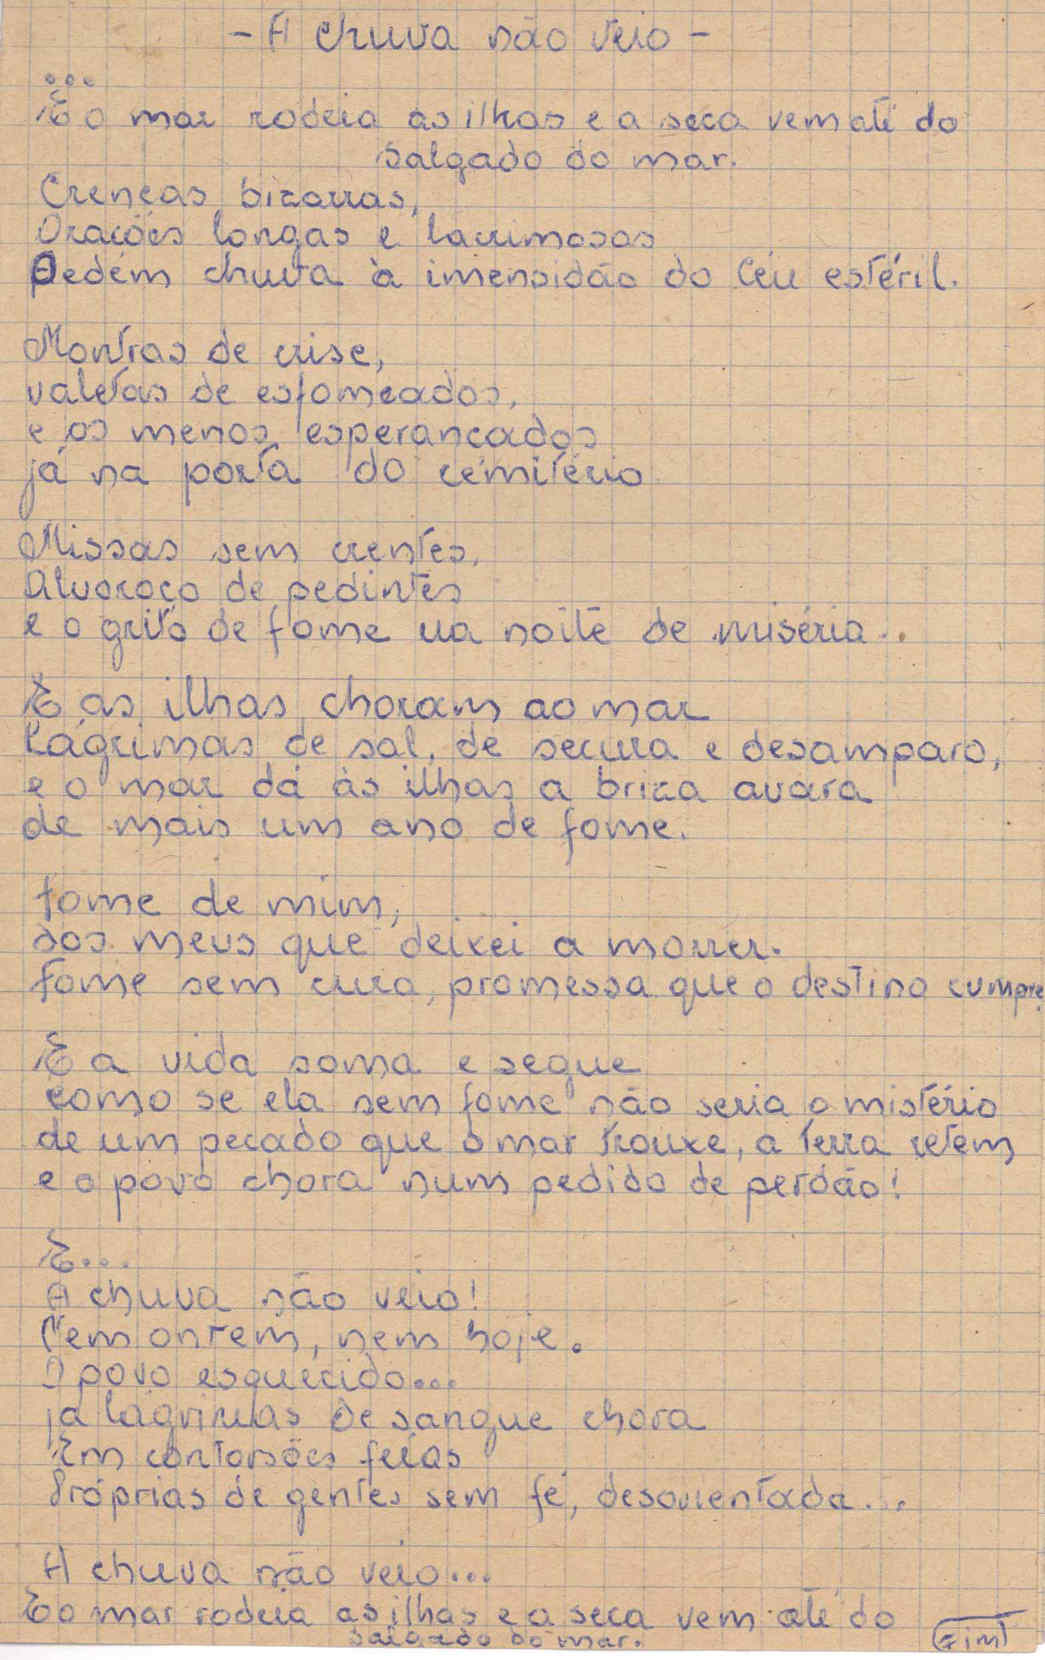 - A chuva não veio -
...
E o mar rodeia as ilhas e a seca vem até do
salgado do mar.
Crenças bizarras,
Orações longas e lacrimosas
Pedem chuva à imensidão do Céu estéril.
Montras de crise,
valetas de esfomeados,
e os menos esperançados
já na porta do cemitério
Missas sem crentes,
Alvoroço de pedintes
e o grito de fome na noite de miséria...
E as ilhas choram ao mar
Lágrimas de sal, de secura e desamparo,
e o mar dá às ilhas a briza avara
de mais um ano de fome.
Fome de mim,
dos meus que deixei a morrer.
Fome sem cura, promessa que o destino cumpre
E a vida soma e segue
como se ela sem fome não seria o mistério
de um pecado que o mar trouxe, a terra retem
e o povo chora num pedido de perdão!
E...
A chuva não veio!
Nem ontem, nem hoje.
O povo esquecido...
já lágrimas de sangue chora
Em contorsões feias
Próprias de gentes sem fé, desorientada...
A chuva não veio...
E o mar rodeia as ilhas e a seca vem até do
salgado do mar.
Fim